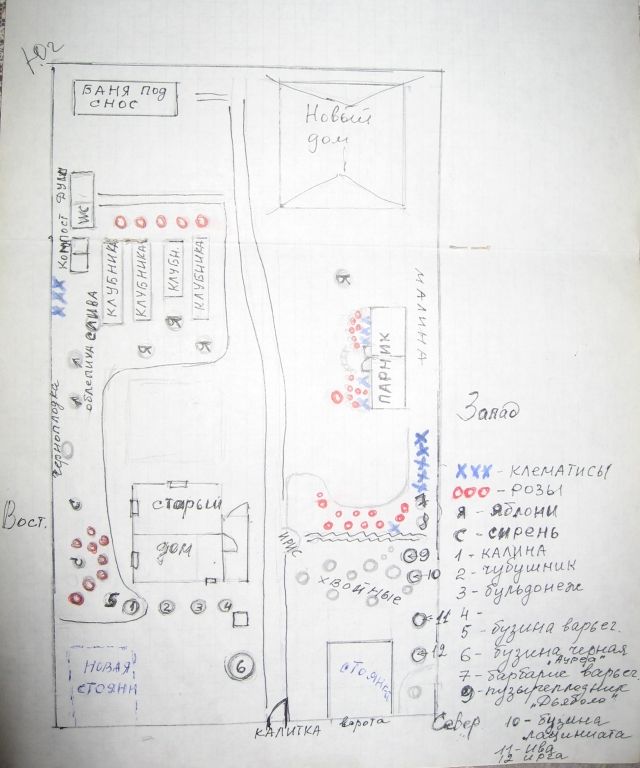 Юг
БАНЯ ПОД
СНОС
Новый
дом
ДУШ
WC
КОМПОСТ
КЛУБНИКА
КЛУБНИКА
КЛУБН.
КЛУБНИКА
XXX
СЛИВА
ОБЛЕПИХА
Я
Я
Я
Я
МАЛИНА
ПАРНИК
ЧЕРНОПЛОДКА
Запад
XXX - КЛЕМАТИСЫ
ООО - РОЗЫ
Я - ЯБЛОНИ
С - СИРЕНЬ
1 - КАЛИНА
2 - ЧУБУШНИК
3 - БУЛЬДОНЕЖ
4 -
5 - БУЗИНА ВАРЬЕГ.
6 - БУЗИНА ЧЕРНАЯ
"АУРЕА"
7 - БАРБАРИС ВАРЬЕГ.
9 - ПУЗЫРЕПЛОДНИК
"Дьяболо"
10 - БУЗИНА
ЛАЦИНИАТА
11 - ИВА
12 ИРГА
Вост.
С
С
СТАРЫЙ
ДОМ
ИРИС
ХВОЙНЫЕ
7
8
9
10
11
12
5
1
2
3
4
6
НОВАЯ
СТОЯНК
СТОЯНК
КАЛИТКА
ворота
Север